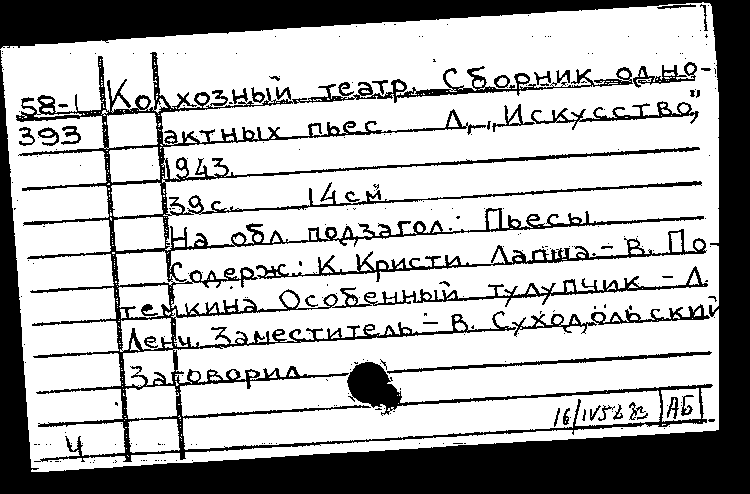 58-1 Колхозный театр. Сборник одно-
393 актных пьес Л., „Искусство”,
1943.
39с. 14см
На обл. подзагол.: Пьесы
Содерж.: К. Кристи. Лапша. – В. По-
темкина. Особенный тулупчик – Л.
Ленч. Заместитель. – В. Суходольский
Заговорил.
16/IV
АБ
Ч